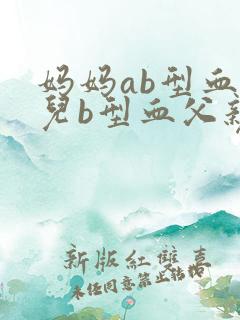 妈妈ab型血
兒b型血父亲
新版紅雙喜
未经同意禁止转载